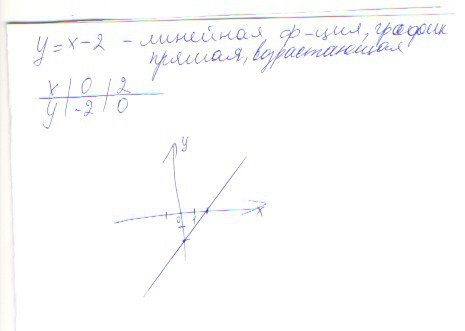 y = x - 2 - линейная ф-ция, график
прямая, возрастающая
x | 0 | 2
y | -2 | 0
y
0 1 x